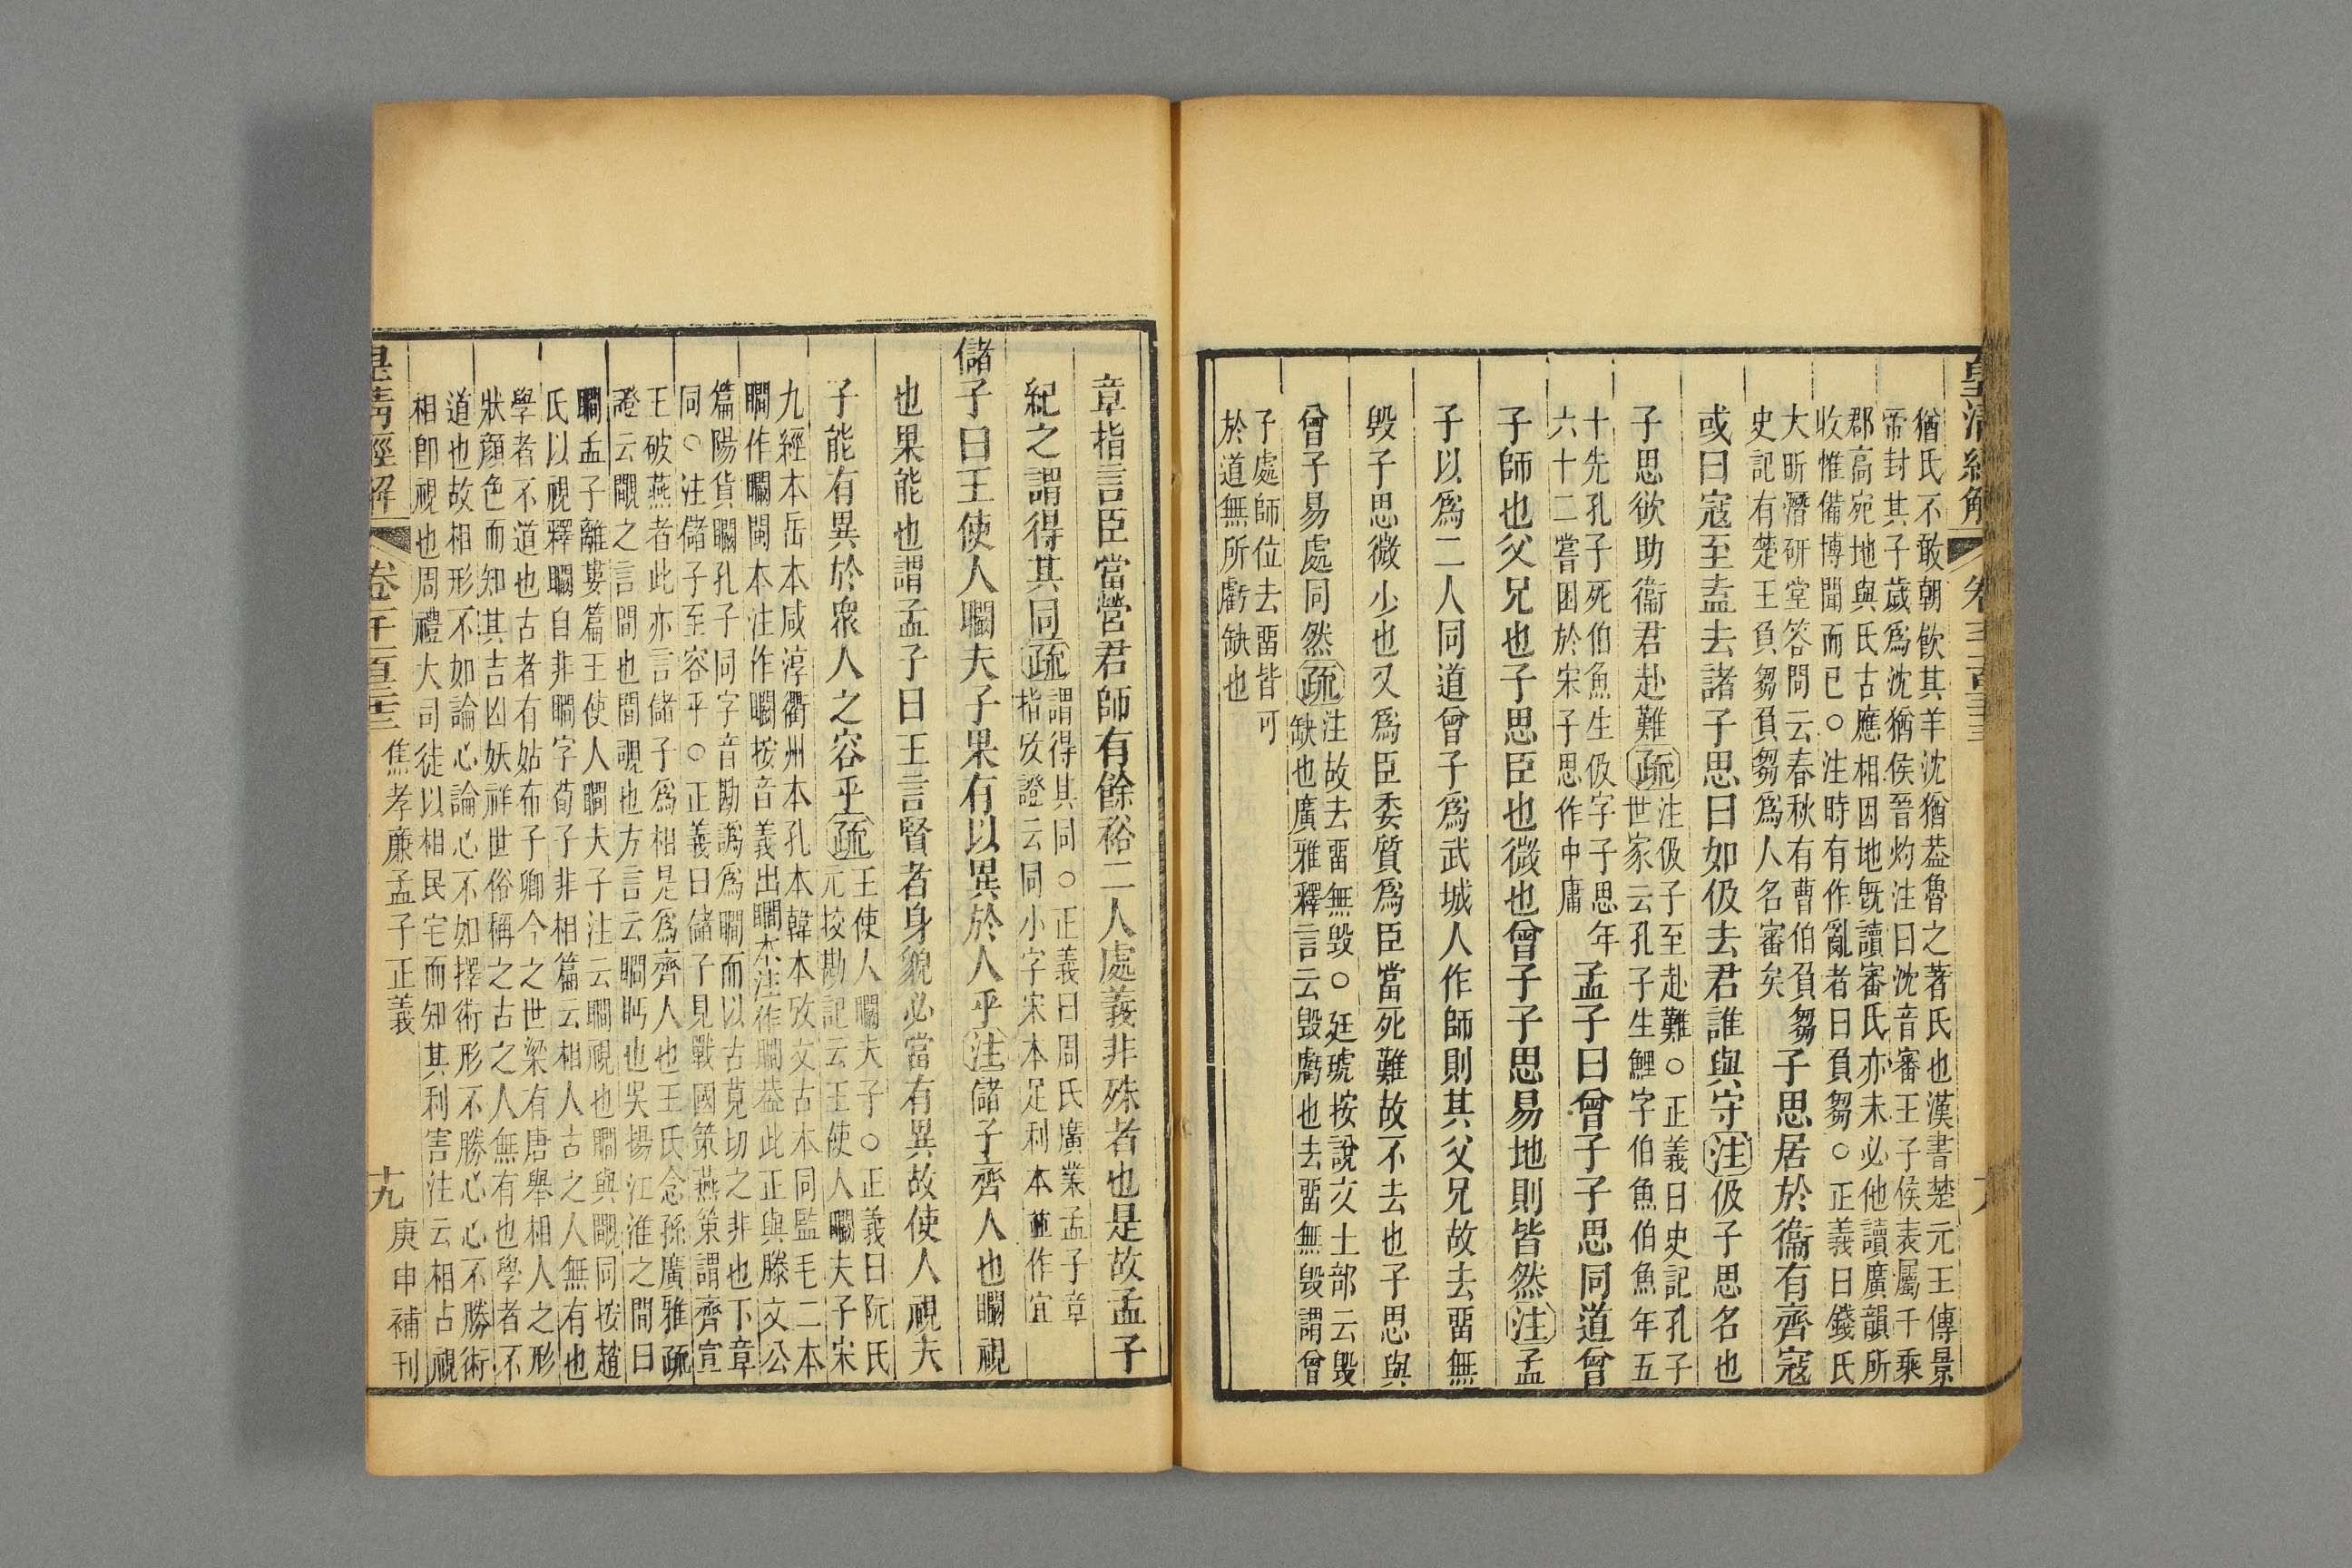 皇清經解
猶氏不敢朝飲其羊沈猶葢魯之著氏也漢書楚元王傳景
帝封其子歲爲沈猶侯晉灼注曰沈音審王子侯表屬千乘
郡高宛地與氏古應相因地旣讀審氏亦未必他讀廣韻所
收惟備博聞而已○注時有作亂者曰負芻○正義曰錢氏
大昕潛研堂答問云春秋有曹伯負芻
史記有楚王負芻負芻爲人名審矣
子思居於衞有齊寇
或曰寇至盍去諸子思曰如伋去君誰與守注伋子思名也
子思欲助衞君赴難疏
注伋子至赴難○正義曰史記孔子
世家云孔子生鯉字伯魚伯魚年五
十先孔子死伯魚生伋字子思年
六十二嘗困於宋子思作中庸
孟子曰曾子子思同道曾
子師也父兄也子思臣也微也曾子子思易地則皆然注孟
子以爲二人同道曾子爲武城人作師則其父兄故去畱無
毀子思微少也又爲臣委質爲臣當死難故不去也子思與
曾子易處同然疏
注故去畱無毀○廷琥按說文土部云毀
缺也廣雅釋言云毀虧也去畱無毀謂曾
子處師位去畱皆可
於道無所虧缺也
章指言臣當營君師有餘裕二人處義非殊者也是故孟子
紀之謂得其同疏
謂得其同○正義曰周氏廣業孟子章
指攷證云同小字宋本足利本並作宜
儲子曰王使人瞯夫子果有以異於人乎注儲子齊人也瞯視
也果能也謂孟子曰王言賢者身貌必當有異故使人視夫
子能有異於衆人之容乎疏
王使人瞯夫子○正義曰阮氏
元挍勘記云王使人瞯夫子宋
九經本岳本咸淳衢州本孔本韓本攷文古本同監毛二本
瞯作矙閩本注作矙按音義出瞯本注作瞯葢此正與滕文公
篇陽貨矙孔子同字音勘譌爲瞯而以古莧切之非也下章
同○注儲子至容乎○正義曰儲子見戰國策燕策謂齊宣
王破燕者此亦言儲子爲相是爲齊人也王氏念孫廣雅疏
證云覸之言閒也閒覗也方言云瞯眄也吳揚江淮之間曰
瞯孟子離婁篇王使人瞯夫子注云瞯視也瞯與覸同按趙
氏以視釋瞯自非瞯字荀子非相篇云相人古之人無有也
學者不道也古者有姑布子卿今之世梁有唐舉相人之形
狀顏色而知其吉凶妖祥世俗稱之古之人無有也學者不
道也故相形不如論心論心不如擇術形不勝心心不勝術
相卽視也周禮大司徒以相民宅而知其利害注云相占視
皇清經解 卷千一百三十三 焦孝廉孟子正義 十九 庚申補刊